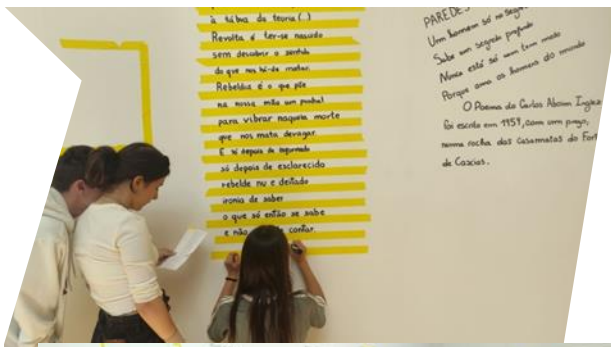 à tábua da teoria (..)
Revolta é ter-se nascido
sem descobrir o sentido
do que nos há-de matar.
Rebeldia é o que põe
na nossa mão um punhal
para vibrar naquela morte
que nos mata devagar.
E só depois de informado
só depois de esclarecido
rebelde nu e deitado
ironia de saber
o que só então se sabe
e não contar.
PAREDES
Um homem só no segre
Sabe um segredo profundo
Nunca está só nem tem medo
Porque ama os homens do mundo
O Poema de Carlos Aboim Inglez
foi escrito em 1959, com um prego,
numa rocha das casamatas do Fort
de Caxias.